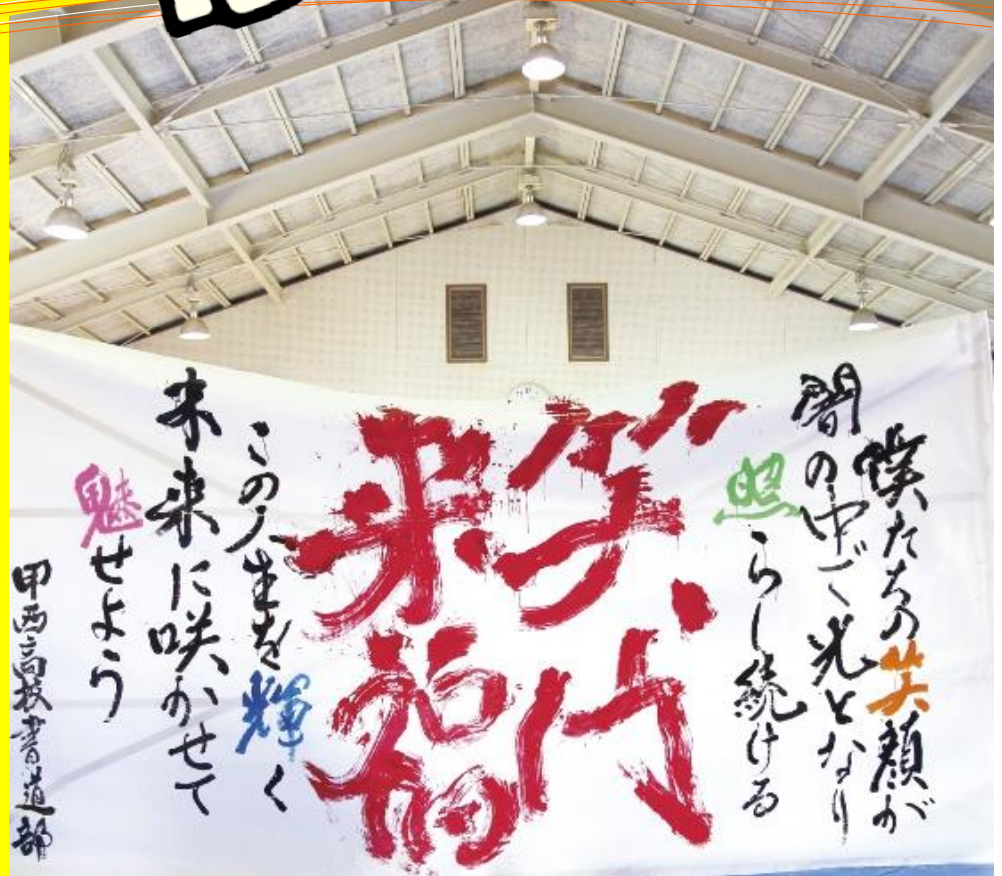 僕たちの笑顔が
闇の中で光となり
照らし続ける
笑門
来福
この人生を輝く
未来に咲かせて
魅せよう
甲西高校書道部